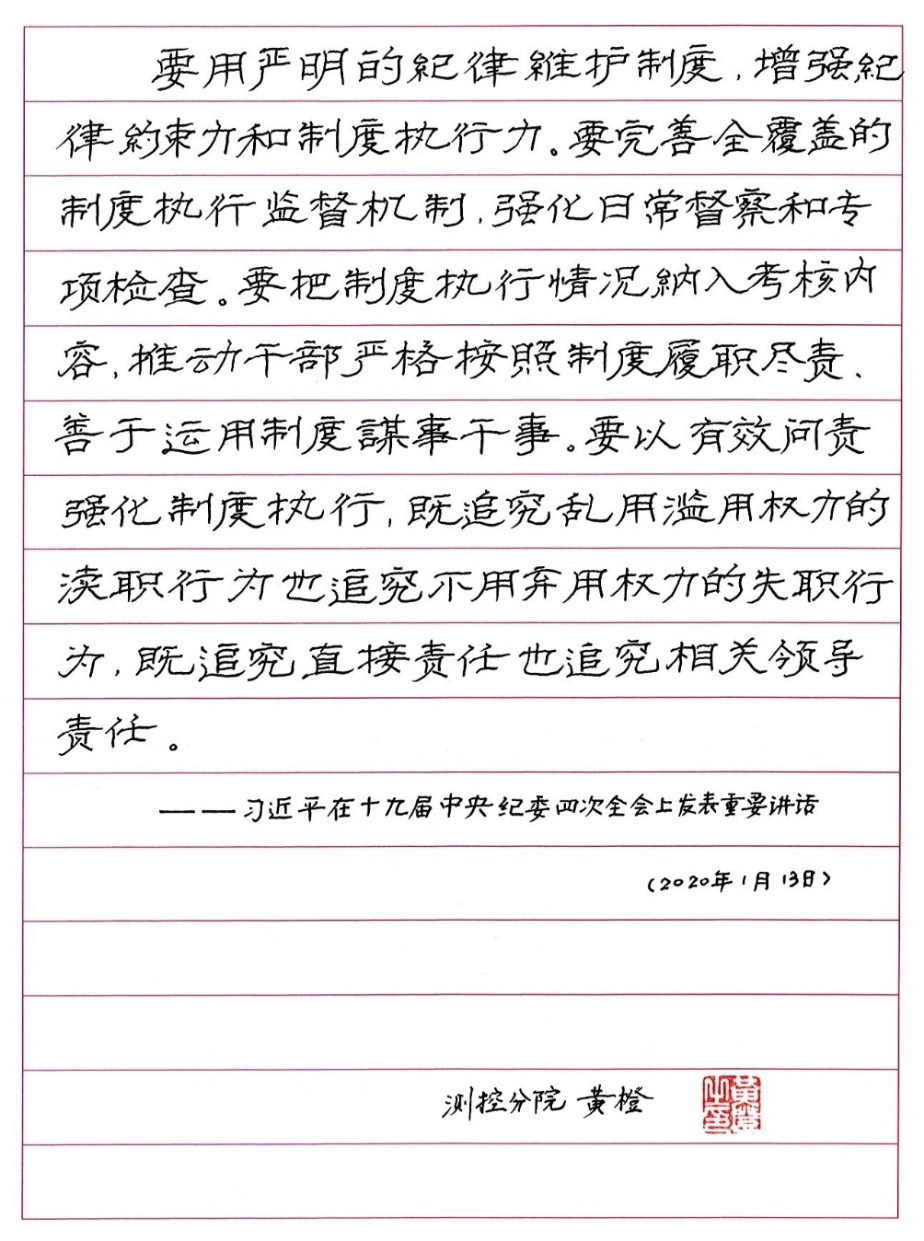 要用严明的紀律維护制度，增强紀
律約束力和制度执行力。要完善全覆盖的
制度执行监督机制，强化日常督察和专
项检查。要把制度执行情况納入考核内
容，推动干部严格按照制度履职尽责、
善于运用制度謀事干事。要以有效问责
强化制度执行，既追究乱用滥用权力的
渎职行为也追究不用弃用权力的失职行
为，既追究直接责任也追究相关领导
责任。
——习近平在十九届中央纪委四次全会上发表重要讲话
（2020年1月13日）
测控分院 黄橙
黃橙之印